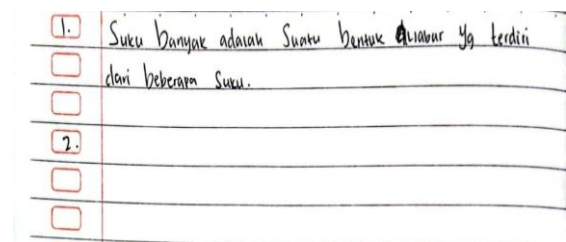 1. Suku banyak adalah Suatu bentuk aljabar yg terdiri
dari beberapa Suku.
2.